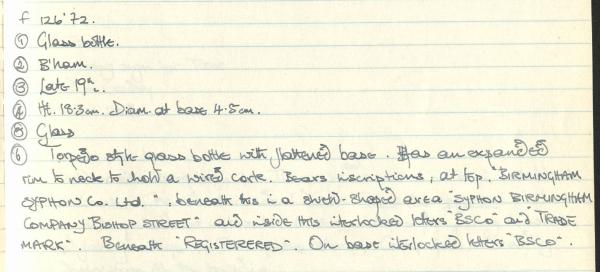 F 126'72.
① Glass bottle.
② B'ham.
③ Late 19th.
④ Ht. 18.3cm. Diam. at base 4.5cm.
⑤ Glass
⑥ Torpedo style glass bottle with flattened base. Has an expanded
rim to neck to hold a wired cork. Bears inscriptions, at top, "BIRMINGHAM
SYPHON Co. Ltd.", beneath this in a shield-shaped area "SYPHON BIRMINGHAM
COMPANY BISHOP STREET" and inside this interlocked letters "BSCO" and "TRADE
MARK". Beneath "REGISTERERED". On base interlocked letters "BSCO".